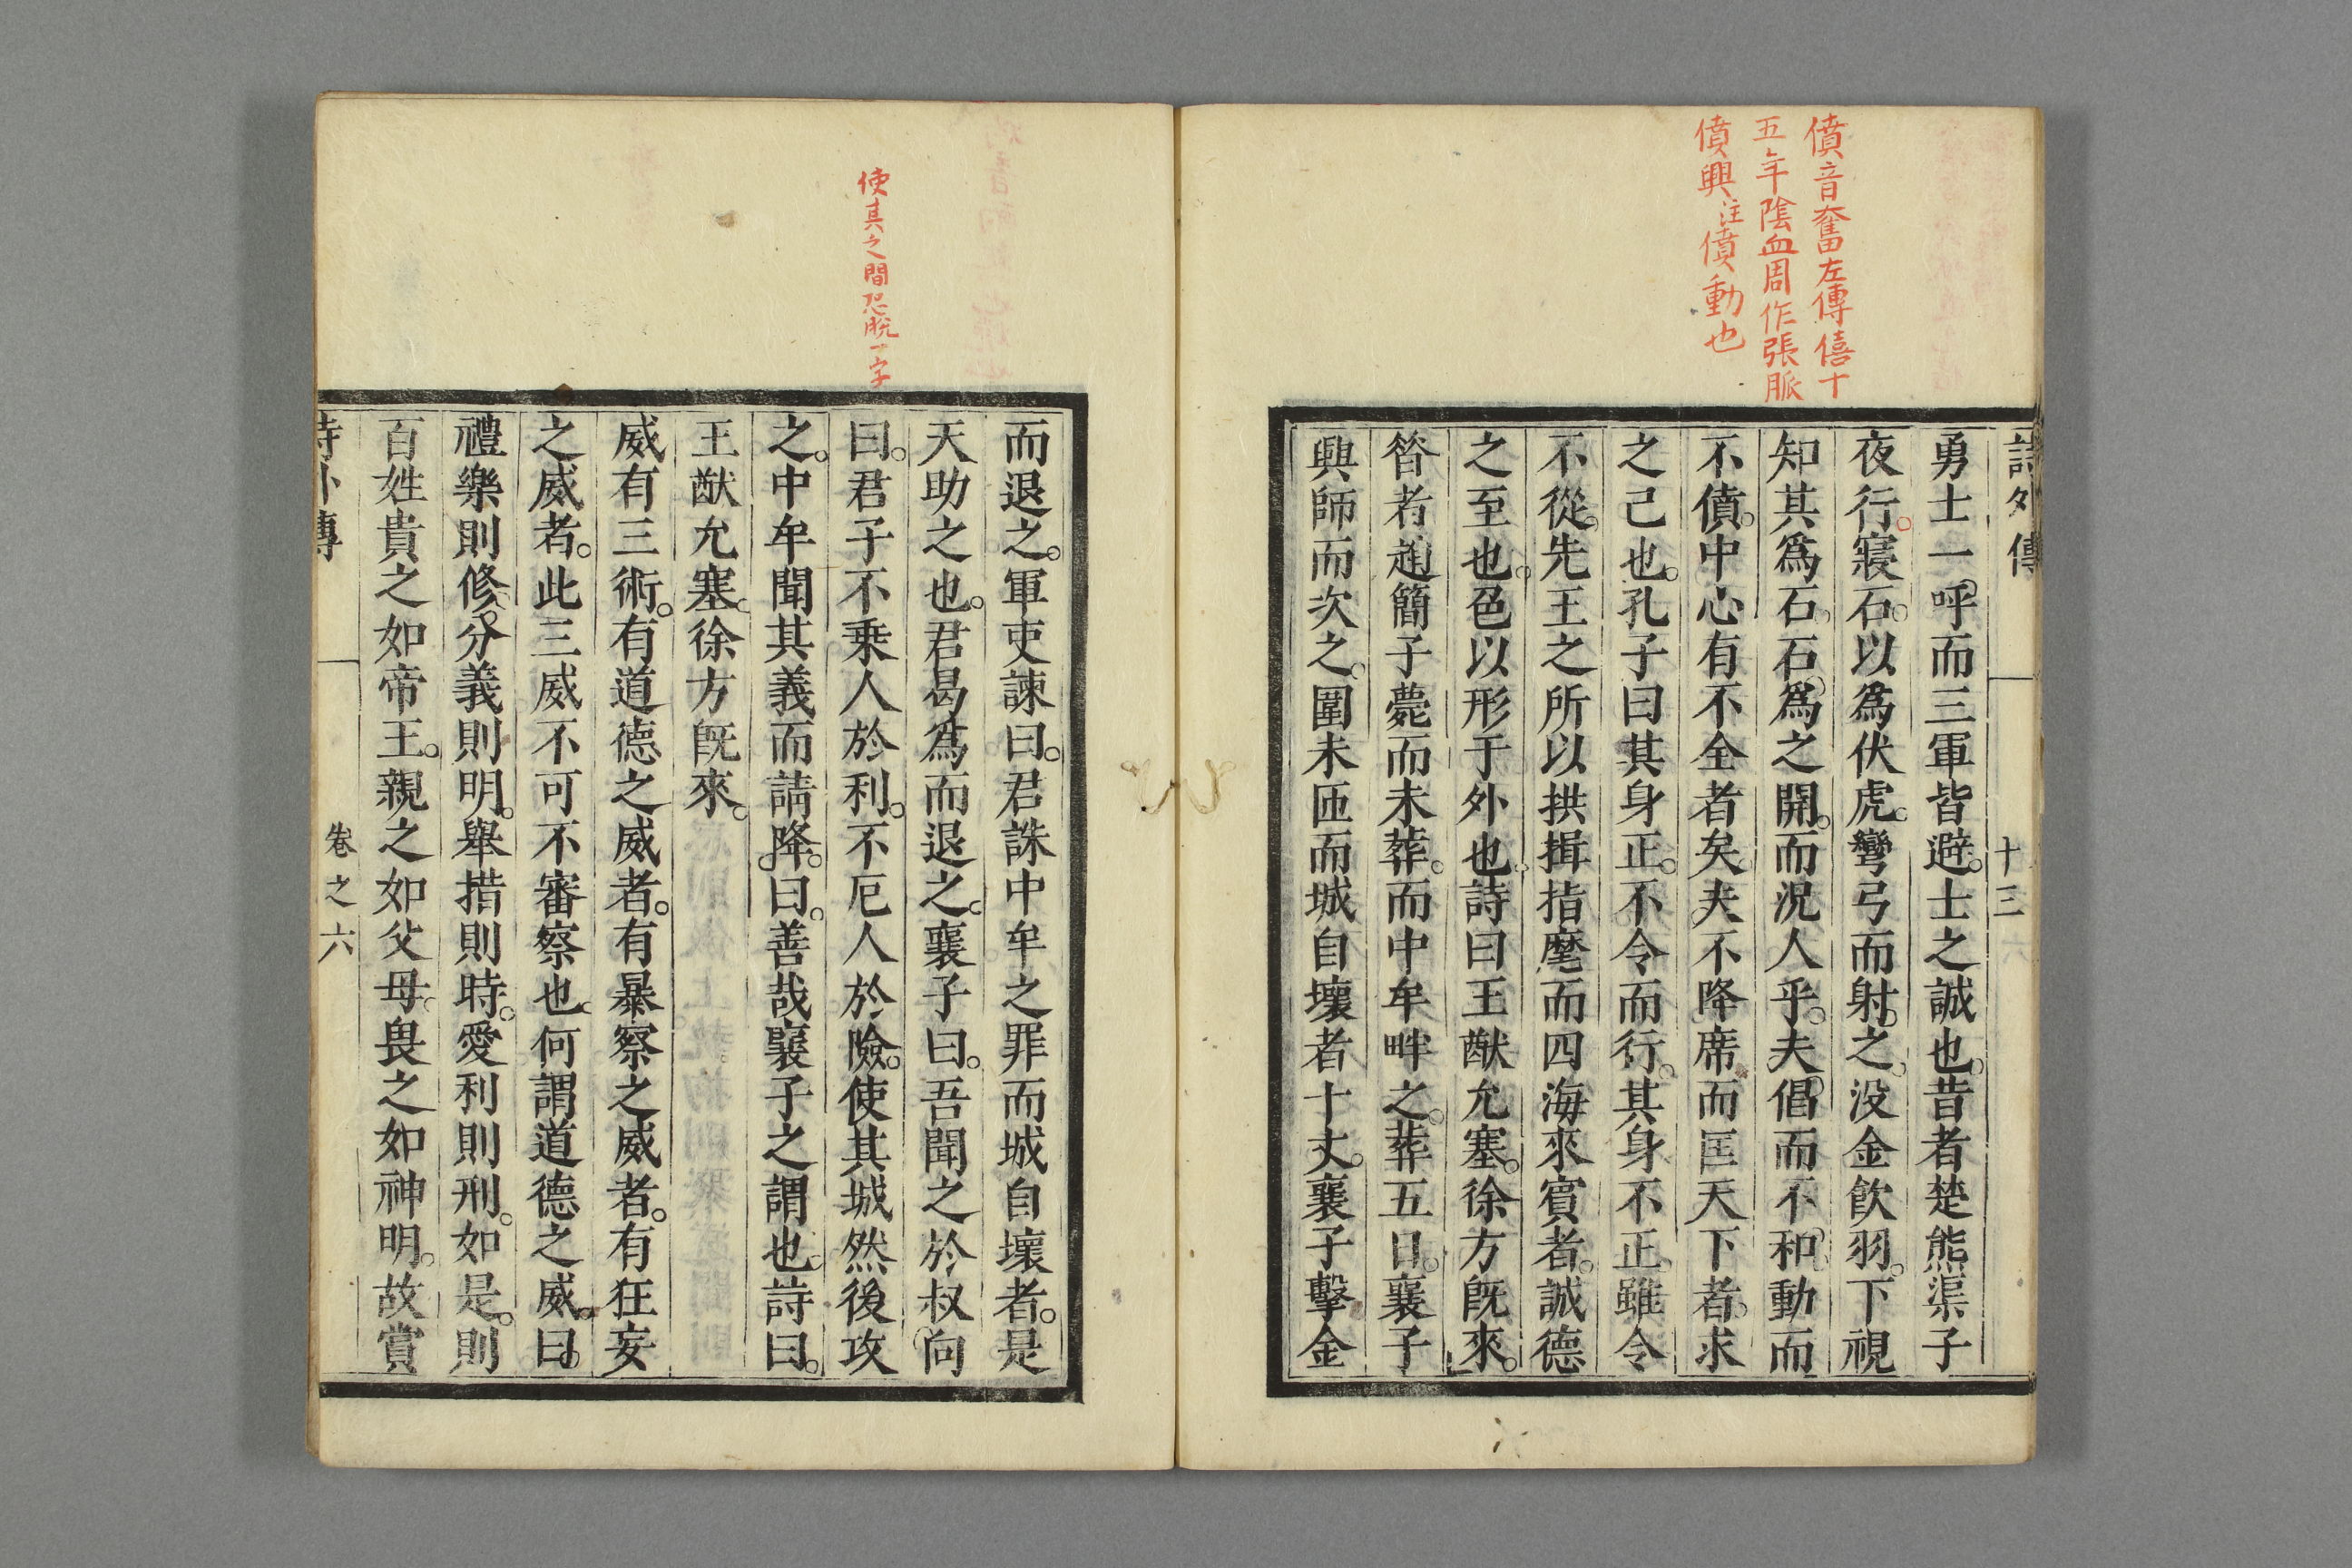 僨音奮左傳僖十
五年陰血周作張脈
僨興注僨動也
詩外傳
十三
勇士一呼而三軍皆避。士之誠也。昔者楚熊渠子
夜行。寢石。以爲伏虎。彎弓而射之。没金飲羽。下視
知其爲石。石爲之開。而況人乎。夫倡而不和。動而
不僨。中心有不全者矣。夫不降席而匡天下者。求
之己也。孔子曰其身正。不令而行。其身不正。雖令
不從。先王之所以拱揖指麾而四海來賓者。誠德
之至也。色以形于外也。詩曰王猷允塞。徐方旣來。
昝者趙簡子薨而未葬。而中牟畔之。葬五日。襄子
興師而次之。圍未匝而城自壞者十丈。襄子擊金
使其之間恐脫一字
而退之。軍吏諫曰。君誅中牟之罪而城自壞者。是
天助之也。君曷爲而退之。襄子曰。吾聞之於叔向
曰。君子不乗人於利。不厄人於險。使其城然後攻
之。中牟聞其義而請降。曰。善哉襄子之謂也。詩曰。
王猷允塞。徐方旣來。
威有三術。有道德之威者。有暴察之威者。有狂妄
之威者。此三威不可不審察也。何謂道德之威。曰。
禮樂則修。分義則明。舉措則時。愛利則刑。如是。則
百姓貴之如帝王。親之如父母。畏之如神明。故賞
詩外傳
卷之六